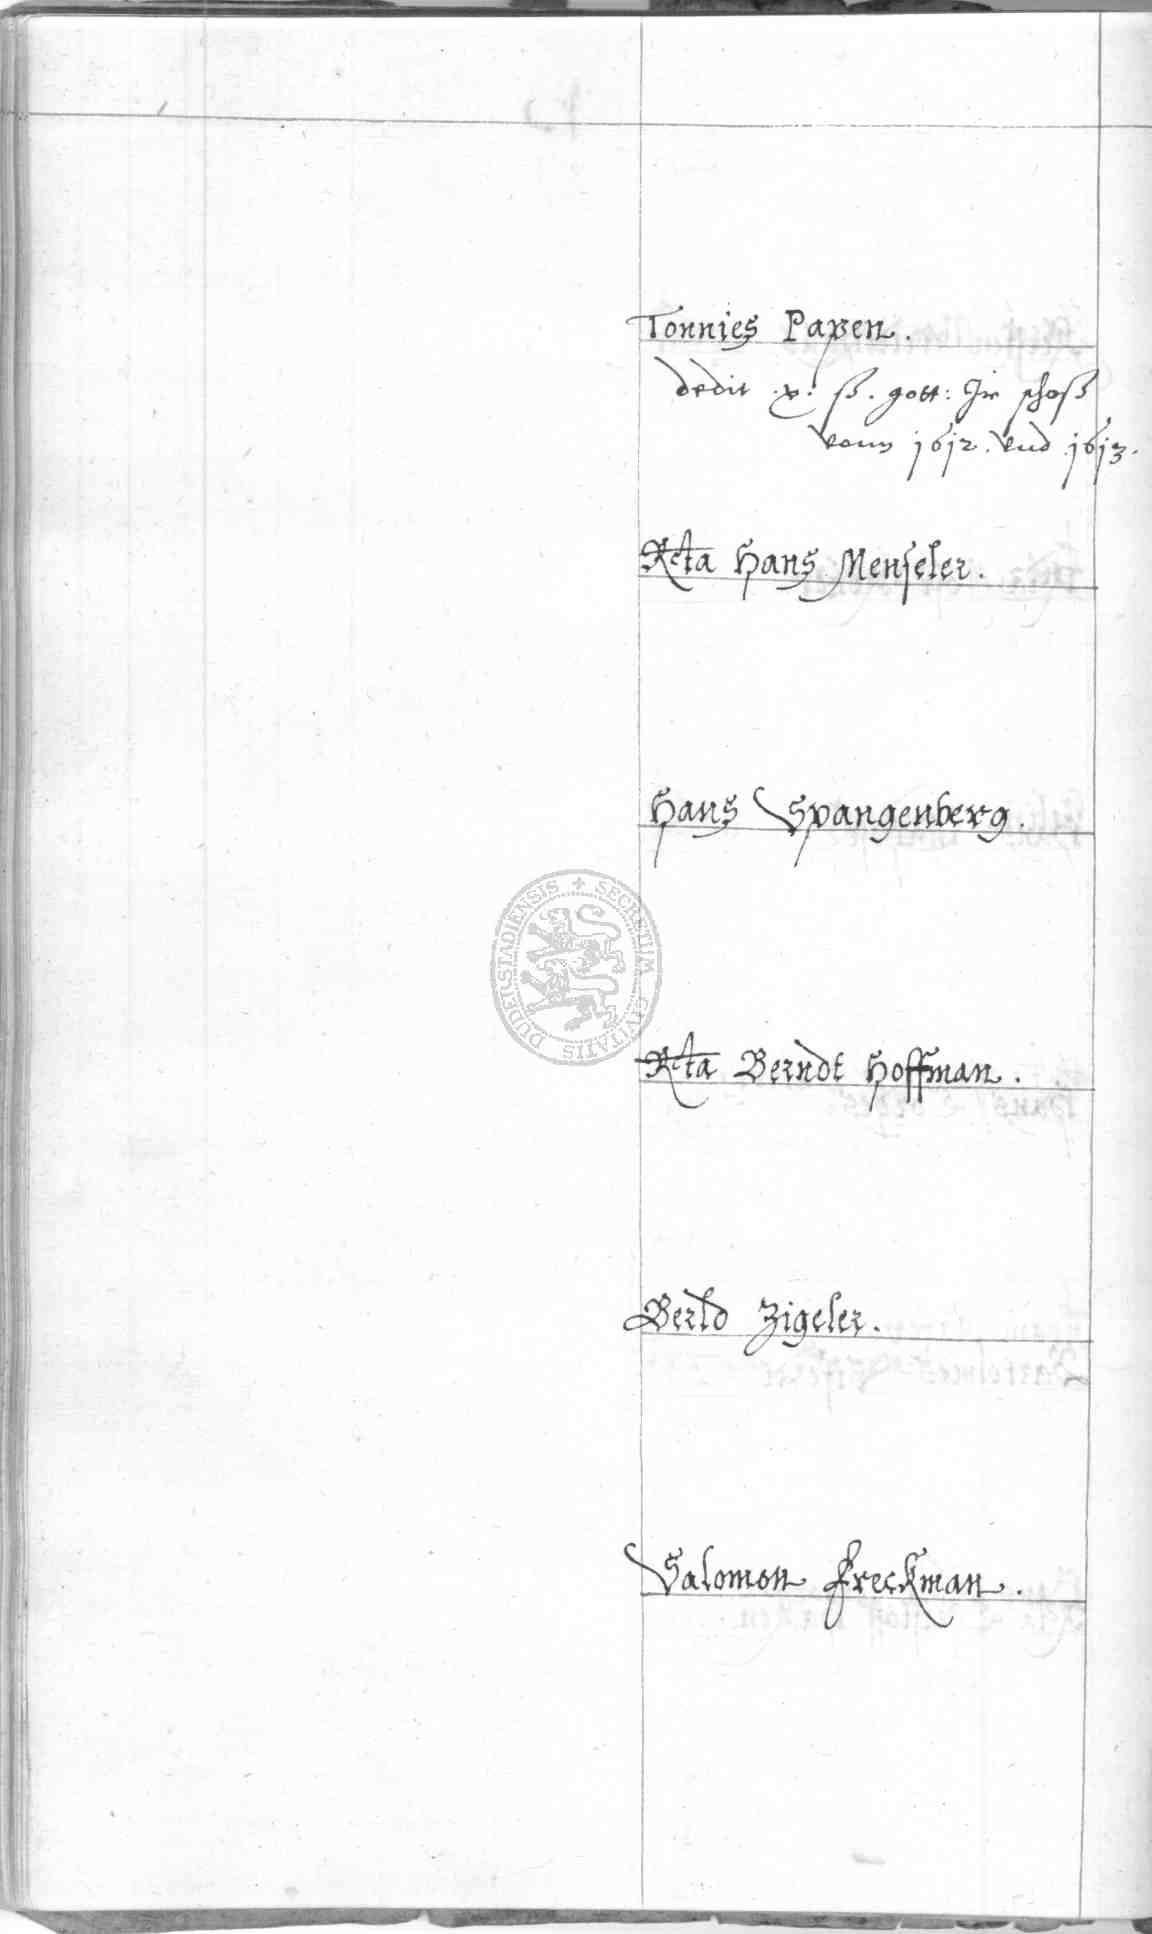 Tonnies Papen.
dedit .x. ß. gott: Jr schoß
vonn 1612. vnd .1613.
Rcta Hans Menseler.
Hans Spangenberg.
DUDERSTADIENSIS + SECRETUM CIVITATIS
Rcta Berndt Hoffman.
Berld Zigeler.
Salomon Freckman.